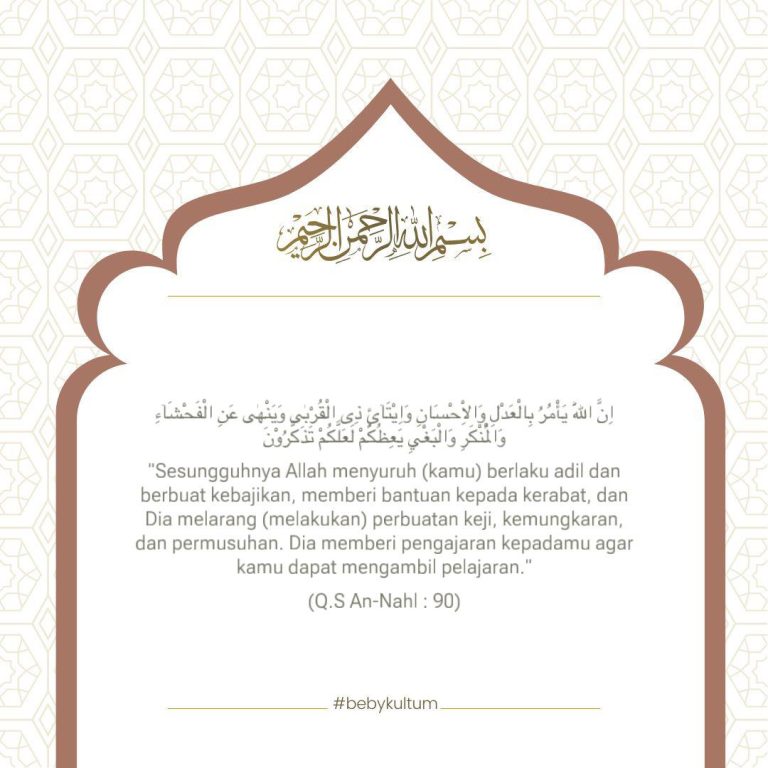 بِسْمِ اللهِ الرَّحْمٰنِ الرَّحِيْمِ
اِنَّ اللّٰهَ يَأْمُرُ بِالْعَدْلِ وَالْاِحْسَانِ وَاِيْتَاۤئِ ذِى الْقُرْبٰى وَيَنْهٰى عَنِ الْفَحْشَاۤءِ
وَالْمُنْكَرِ وَالْبَغْيِ يَعِظُكُمْ لَعَلَّكُمْ تَذَكَّرُوْنَ
"Sesungguhnya Allah menyuruh (kamu) berlaku adil dan
berbuat kebajikan, memberi bantuan kepada kerabat, dan
Dia melarang (melakukan) perbuatan keji, kemungkaran,
dan permusuhan. Dia memberi pengajaran kepadamu agar
kamu dapat mengambil pelajaran."
(Q.S An-Nahl : 90)
#bebykultum